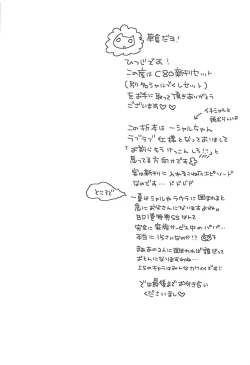 車倉だヨ!
ひつじです!
この度は C80新刊セット
(別名シャルづくしセット)
をお手に取って頂きありがとう
ございます♡♡
イチシャルと
読むらしいよ
この折本は一シャルちゃん
ラブラブ仕様となっておりまして
「お前らもうけっこんしろ!」と
思ってる方向けです
実は新刊に入れるエピソード
なのです… ドドドド
ところで
一夏はシャルやラウラに囲まれると
急にお父さんになりますよね
BD1巻特典SSなんて
完全に家族サービス中のパパ…
本当に15さいなのか!?
まああの2人に囲まれれば誰だって
おとんになりますよね…
ISのキャラはみんなカワイイです♡
では最後までお付き合い
くださいまし♡